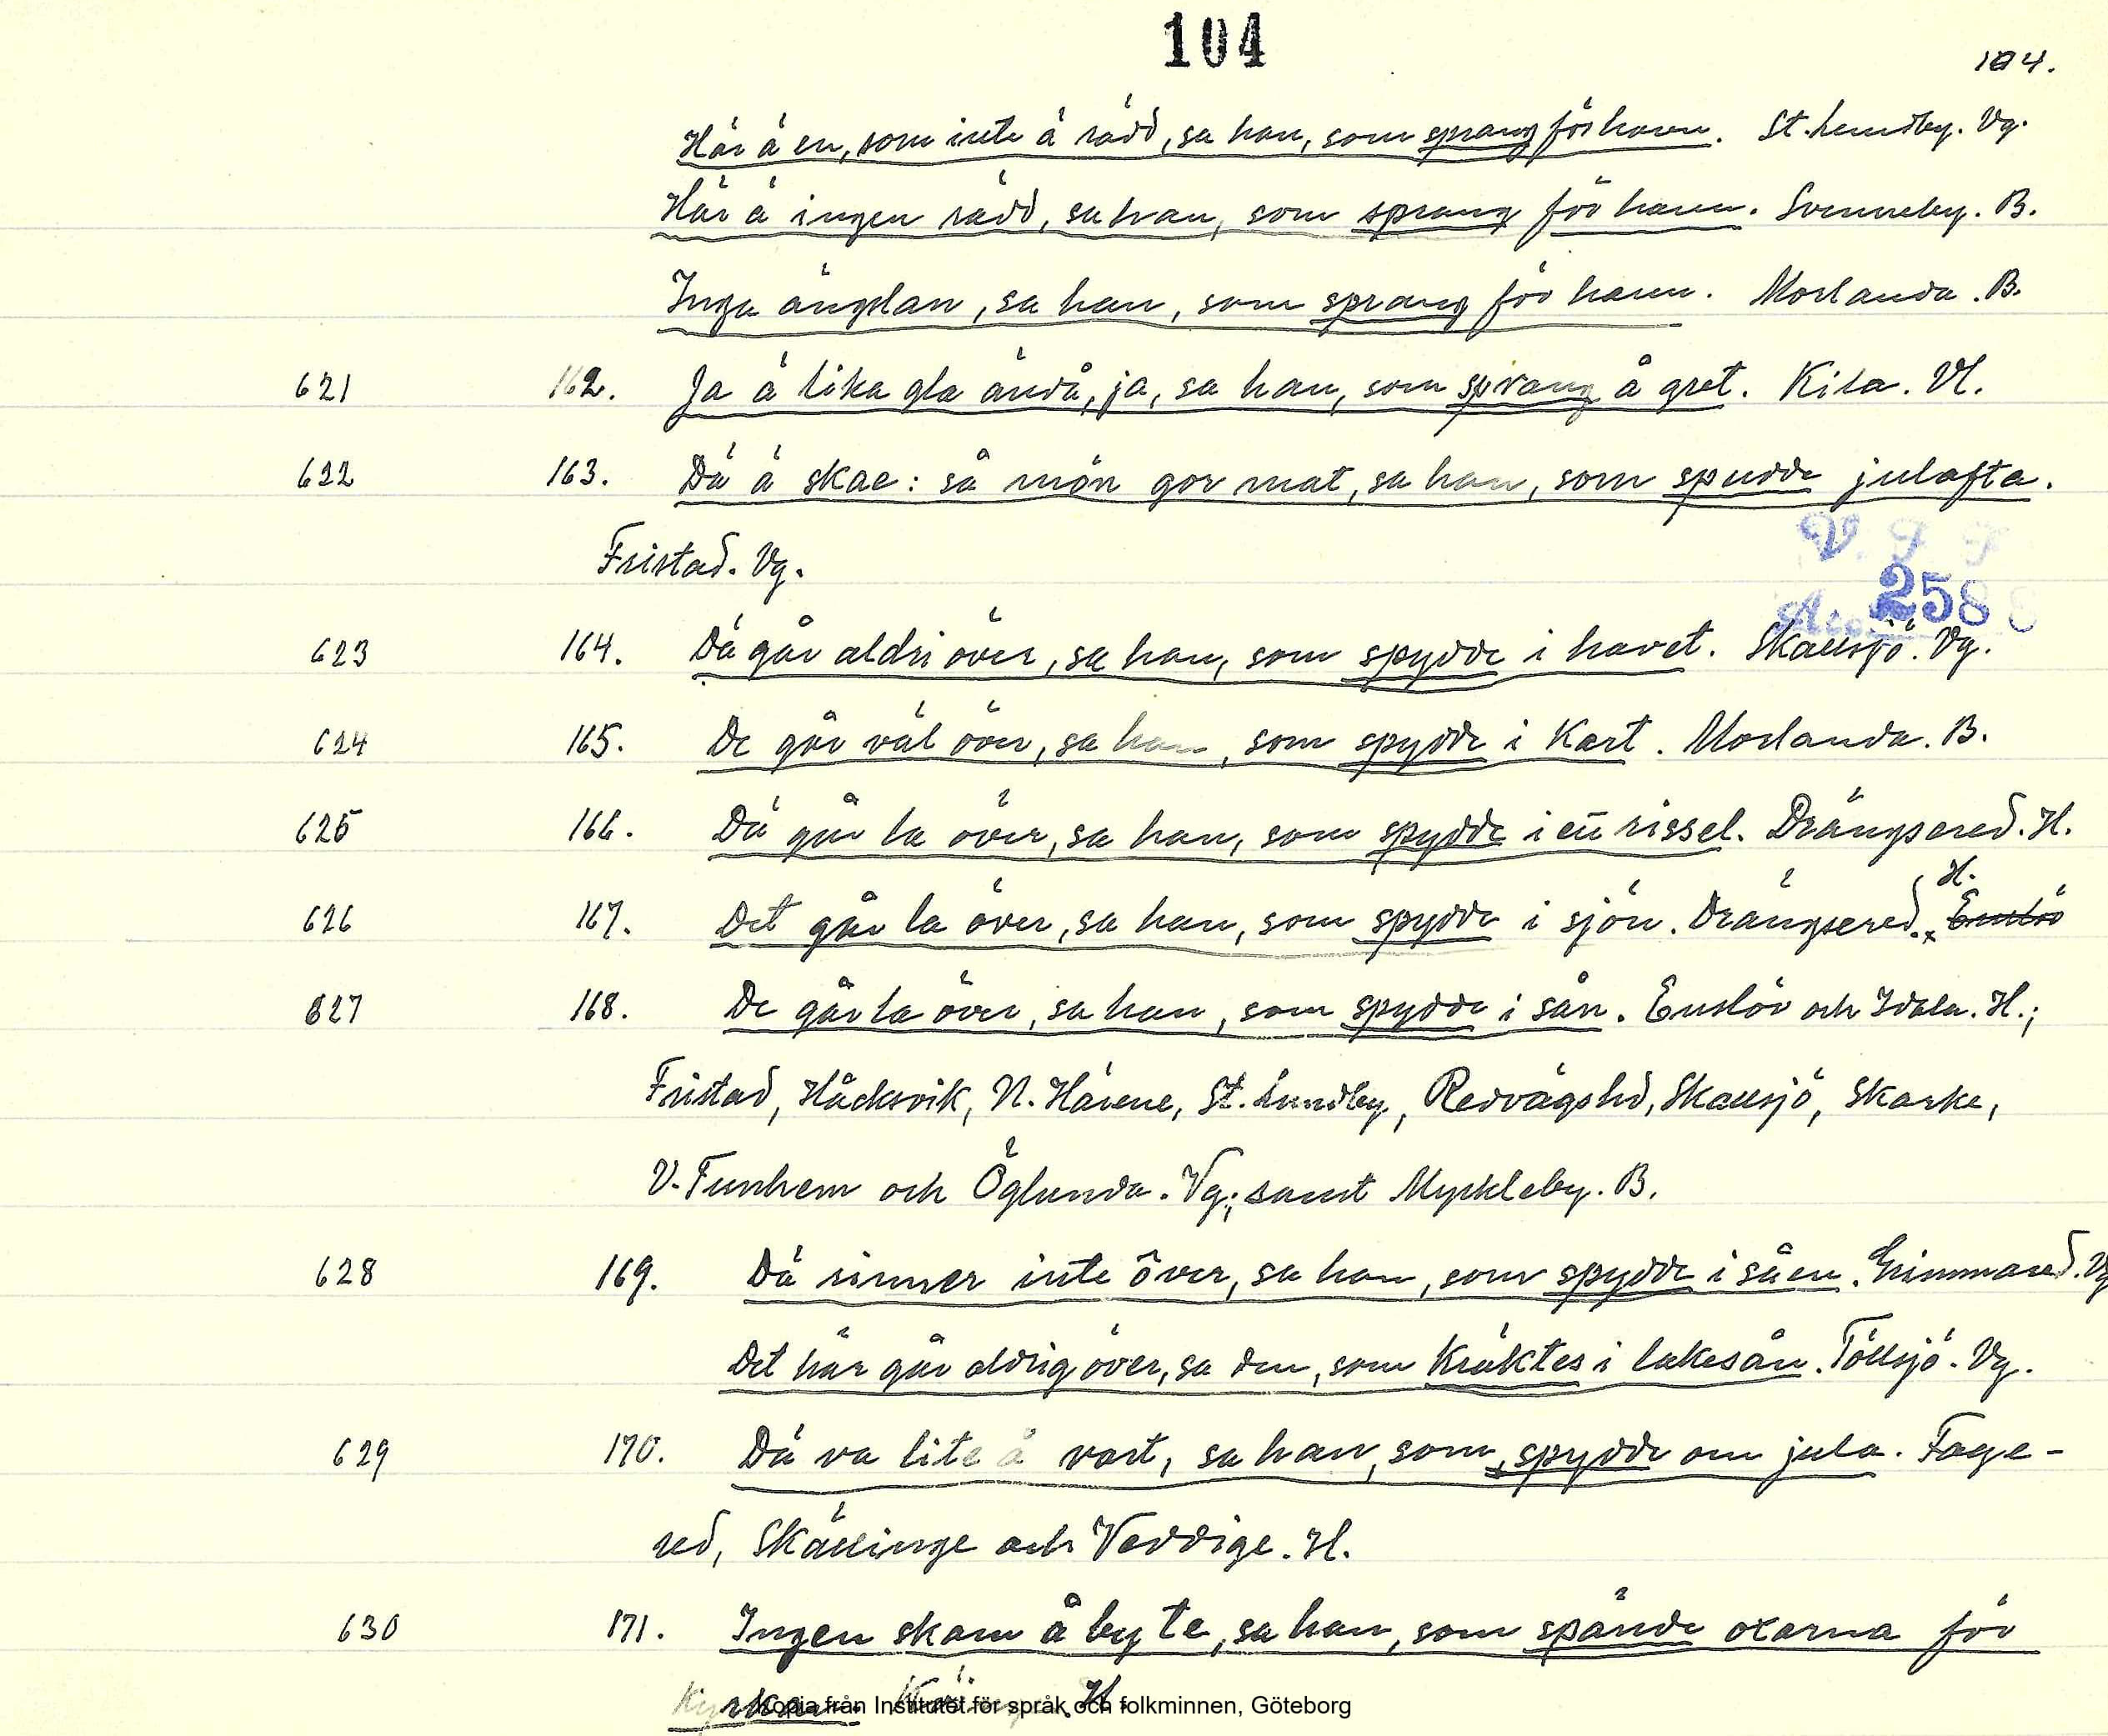 104
104.
Här ä en, som inte ä rädd, sa han, som sprang för haren. St. Lundby. Vg.
Här ä ingen rädd, sa han, som sprang för haren. Svenneby. B.
Inga ängslan, sa han, som sprang för haren. Morlanda. B.
621 162. Ja ä lika gla ändå, ja, sa han, som sprang å gret. Kila. Vl.
622 163. Dä ä skae: så mön gor mat, sa han, som spudde julafta.
Fristad. Vg.
V. F. F.
258
623 164. Dä går aldri över, sa han, som spydde i havet. Skallsjö. Vg.
624 165. De går väl över, sa han, som spydde i Kart. Morlanda. B.
625 166. Dä går la över, sa han, som spydde i en rissel. Drängsered. H.
626 167. Det går la över, sa han, som spydde i sjön. Drängsered. H. Enslöv
627 168. De går la över, sa han, som spydde i sån. Enslöv och Idala. H.;
Fristad, Håcksvik, N. Härene, St. Lundby, Redvägshd, Skallsjö, Skarke,
V. Tunhem och Öglunda. Vg.; samt Myckleby. B.
628 169. Dä rinner inte över, sa han, som spydde i såen. Grimmared. Vg
Det här går aldrig över, sa den, som kräktes i lakesån. Töllsjö. Vg.
629 170. Dä va lite å vart, sa han, som spydde om jula. Fage-
red, Skällinge och Veddige. H.
630 171. Ingen skam å byte, sa han, som spände oxarna för
Kyrkan. H.
Kopia från Institutet för språk och folkminnen, Göteborg